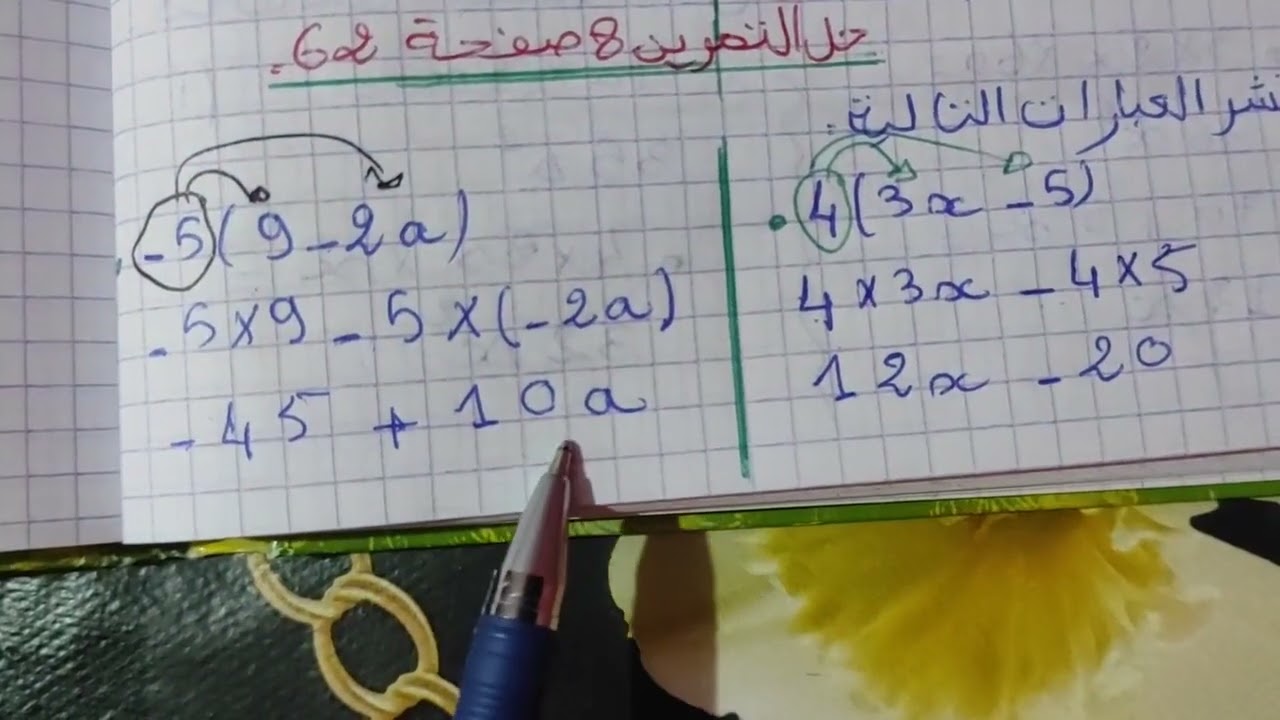 حل التمرين 8 صفحة 62.
نشر العبارات التالية.
4(3x - 5)
4 x 3x - 4 x 5
12x - 20
-5(9 - 2a)
-5 x 9 - 5 x (-2a)
-45 + 10a